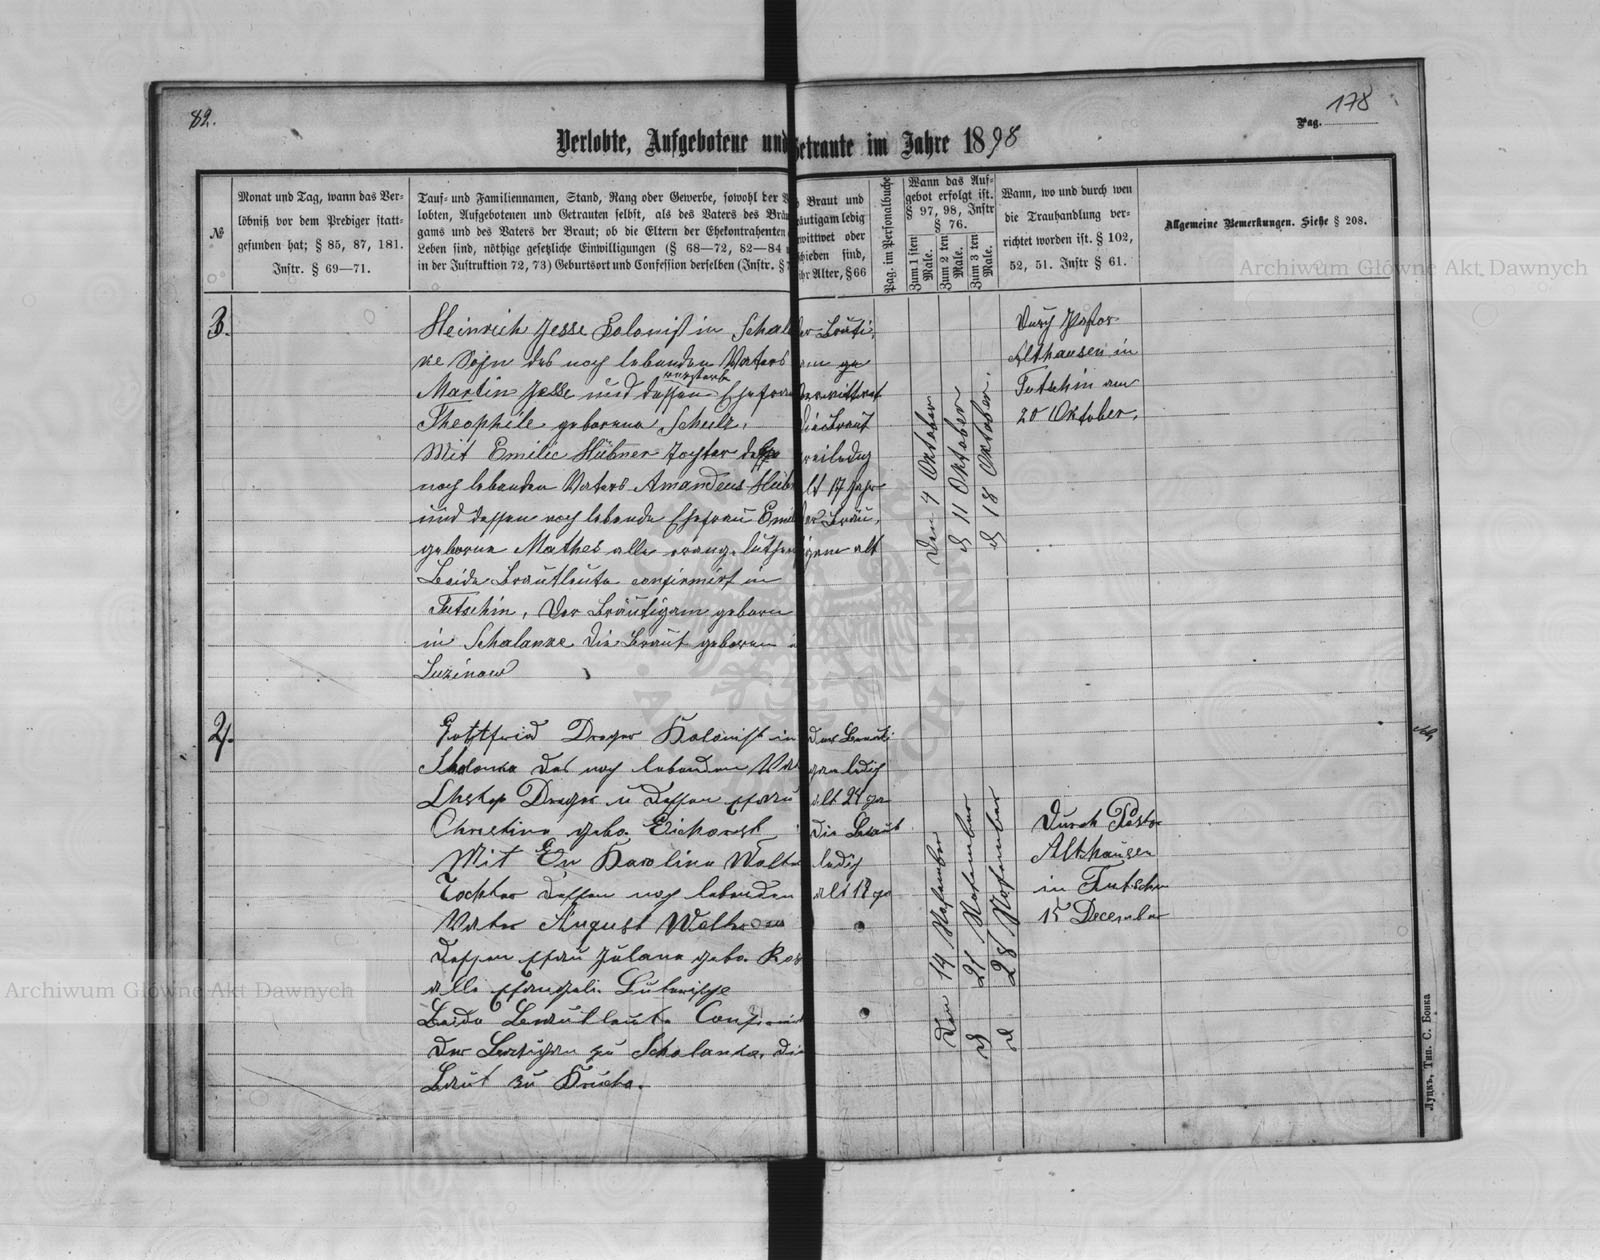 82.
178
Pag.
Verlobte, Aufgebotene und Getraute im Jahre 1898
№
Monat und Tag, wann das Ver-
löbniß vor dem Prediger statt-
gefunden hat; § 85, 87, 181.
Instr. § 69—71.
Tauf- und Familiennamen, Stand, Rang oder Gewerbe, sowohl der
lobten, Aufgebotenen und Getrauten selbst, als des Vaters des Bräu
gams und des Vaters der Braut; ob die Eltern der Ehekontrahenten
Leben sind, nöthige gesetzliche Einwilligungen (§ 68—72, 82—84
in der Instruktion 72, 73) Geburtsort und Confession derselben (Instr. §
Braut und
äutigam ledig
wittwet oder
chieden sind,
ihr Alter, § 66
Pag. im Personalbuche
Wann das Auf-
gebot erfolgt ist.
§ 97, 98, Instr
§ 76.
Zum 1 sten
Male.
Zum 2 ten
Male.
Zum 3 ten
Male.
Wann, wo und durch wen
die Trauhandlung ver-
richtet worden ist. § 102,
52, 51. Instr § 61.
Allgemeine Bemerkungen. Siehe § 208.
3.
Heinrich Jesse Kolonist in Schal
ke Sohn des noch lebenden Vaters
verstorb
Martin Jesse und dessen Ehefrau
Theophile geborene Schulz.
Mit Emilie Hübner Tochter des
noch lebenden Vaters Amandeus Hüb
und dessen noch lebende Ehefrau Emil
geborne Mathes alle evang. luther
Beide Brautleute confirmirt in
Tutschin. Der Bräutigam geboren
in Schalanke die Braut geboren
Luzinow
er Bräuti
am ge
verwittwet
die Braut
sei ledig
alt 17 Jahr
der Bräu
igam alt
den 4 Oktober
d 11 Oktober
d 18 Oktober.
Durch Pastor
Althausen in
Tutschin am
20 Oktober.
4.
Gottfried Dreger Kolonist in
des noch lebenden
Dreger u dessen Efrau
Christine gebo.
Mit Karoline Walt
Tochter dessen noch lebenden
Vater August
dessen Efrau Julana gebo.
alle Efangeli. Luterische
Beide Brautleute
der Breutigam zu Scholanka, die
Braut zu
der Breuti
gam ledig
die Braut
ledig
alt 18 ja
Den 14 Nofember
d 21 Nofember
d 28 Nofember
Durch Pastor
Althausen
in Tutschin
15 December
Луцкъ, Тип. С. Бонка
Archiwum Główne Akt Dawnych
Archiwum Główne Akt Dawnych